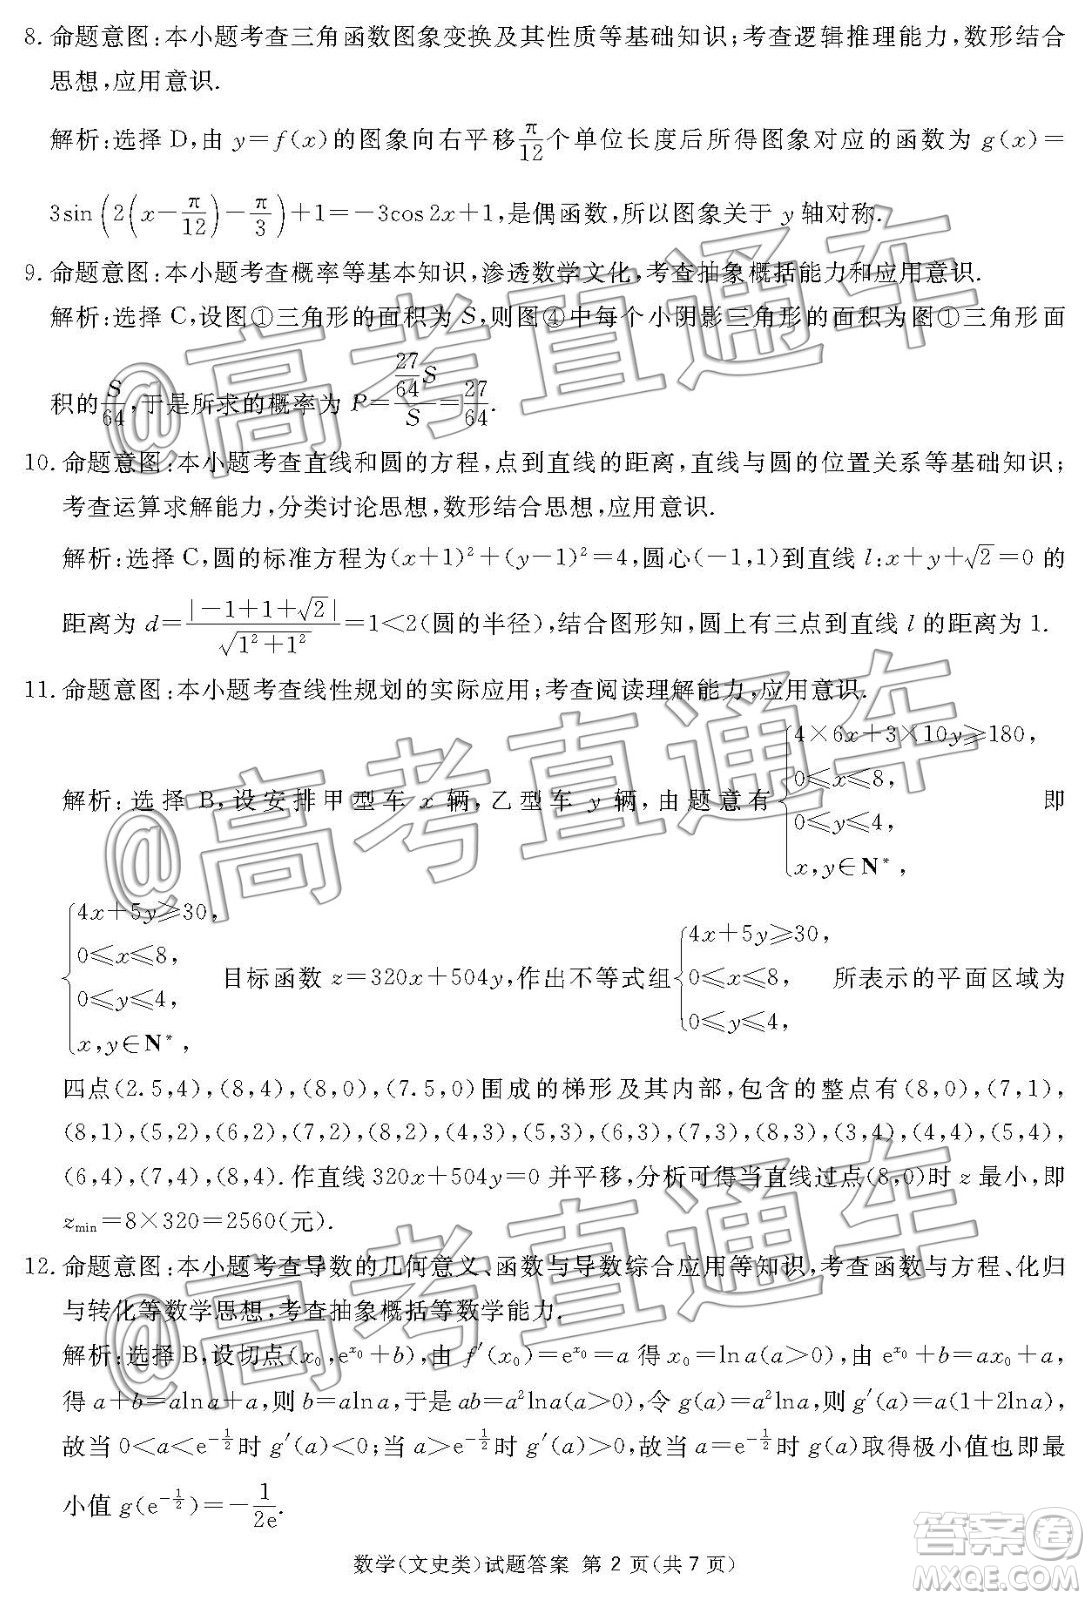 8. 命题意图:本小题考查三角函数图象变换及其性质等基础知识;考查逻辑推理能力,数形结合
思想,应用意识.
解析:选择 D,由 y=f(x)的图象向右平移π/12个单位长度后所得图象对应的函数为 g(x)=
3sin(2(x-π/12)-π/3)+1=-3cos 2x+1,是偶函数,所以图象关于 y 轴对称.
9. 命题意图:本小题考查概率等基本知识,渗透数学文化,考查抽象概括能力和应用意识.
解析:选择 C,设图①三角形的面积为 S,则图④中每个小阴影三角形的面积为图①三角形面
积的S/64,于是所求的概率为 P=(27/64 S)/S=27/64.
10. 命题意图:本小题考查直线和圆的方程,点到直线的距离,直线与圆的位置关系等基础知识;
考查运算求解能力,分类讨论思想,数形结合思想,应用意识.
解析:选择 C,圆的标准方程为(x+1)²+(y-1)²=4,圆心(-1,1)到直线 l:x+y+√2=0 的
距离为 d=|-1+1+√2|/√(1²+1²)=1<2(圆的半径),结合图形知,圆上有三点到直线 l 的距离为 1.
11. 命题意图:本小题考查线性规划的实际应用;考查阅读理解能力,应用意识.
解析:选择 B,设安排甲型车 x 辆,乙型车 y 辆,由题意有{4×6x+3×10y≥180, 0≤x≤8, 0≤y≤4, x,y∈N*, 即
{4x+5y≥30, 0≤x≤8, 0≤y≤4, x,y∈N*, 目标函数 z=320x+504y,作出不等式组{4x+5y≥30, 0≤x≤8, 0≤y≤4, 所表示的平面区域为
四点(2.5,4),(8,4),(8,0),(7.5,0)围成的梯形及其内部,包含的整点有(8,0),(7,1),
(8,1),(5,2),(6,2),(7,2),(8,2),(4,3),(5,3),(6,3),(7,3),(8,3),(3,4),(4,4),(5,4),
(6,4),(7,4),(8,4).作直线 320x+504y=0 并平移,分析可得当直线过点(8,0)时 z 最小,即
zmin=8×320=2560(元).
12. 命题意图:本小题考查导数的几何意义、函数与导数综合应用等知识,考查函数与方程、化归
与转化等数学思想,考查抽象概括等数学能力.
解析:选择 B,设切点(x₀,e^x₀+b),由 f′(x₀)=e^x₀=a 得 x₀=ln a(a>0),由 e^x₀+b=ax₀+a,
得 a+b=aln a+a,则 b=aln a,于是 ab=a²ln a(a>0),令 g(a)=a²ln a,则 g′(a)=a(1+2ln a),
故当 0<a<e^(-1/2)时 g′(a)<0;当 a>e^(-1/2)时 g′(a)>0,故当 a=e^(-1/2)时 g(a)取得极小值也即最
小值 g(e^(-1/2))=-1/2e.
数学(文史类)试题答案 第 2 页(共 7 页)
@高考直通车
@高考直通车
@高考直通车
答案卷
MXQE.COM